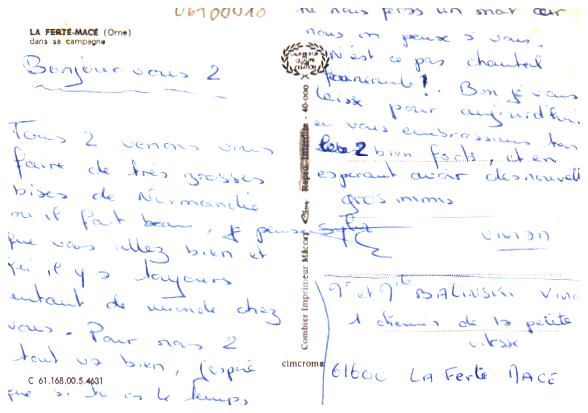 U6100U10
LA FERTÉ-MACÉ (Orne)
dans sa campagne
Bonjour vous 2
Tous 2 venons vous
faire de très grosses
bises de Normandie
ou il fait beau, je pense
que vous allez bien et
qu'il y a toujours
autant de monde chez
vous. Pour nous 2
tout va bien, j'espère
que si tu as le temps,
tu nous feras un mot car
nous on peux si vous.
N'est ce pas chantal
!.. Bon je vous
laisse pour aujourd'hui
en vous embrassant tous
les 2 bien forts, et en
esperant avoir des nouvelles
gros mimis
VIVIAN
Mr et Mlle BALINSKI
1 chemin de la petite
vitesse
61600 LA FERTE MACÉ
Combier Imprimeur Mâcon
Repro. Interdite - 40-000
cimcrome
C 61.168.00.5.4631